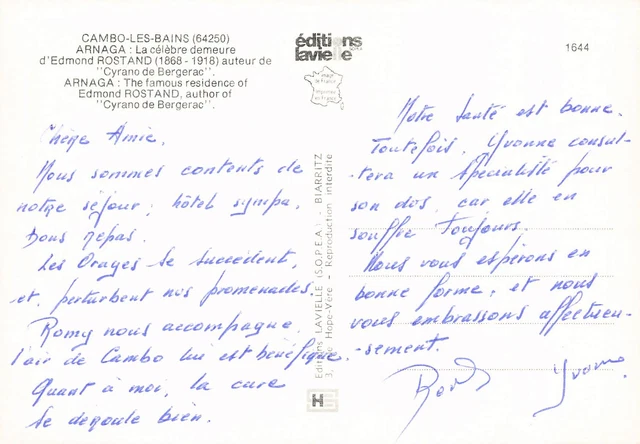 CAMBO-LES-BAINS (64250)
ARNAGA : La célèbre demeure
d'Edmond ROSTAND (1868 - 1918) auteur de
"Cyrano de Bergerac".
ARNAGA : The famous residence of
Edmond ROSTAND, author of
"Cyrano de Bergerac".
éditions
lavielle
1644
Chère Amie,
Nous sommes contents de
notre séjour ; hôtel sympa,
bons repas.
Les Orages se succèdent,
et perturbent nos promenades.
Romy nous accompagne,
l'air de Cambo lui est bénéfique.
Quant à moi, la cure
se déroule bien.
Editions LAVIELLE (S.O.P.E.A.) - BIARRITZ
Hope-Vère - Reproduction interdite
Notre Santé est bonne.
Toutefois, Yvonne consul-
tera un Spécialiste pour
son dos, car elle en
souffre toujours.
Nous vous espérons en
bonne forme, et nous
vous embrassons affectueu-
-sement.
Yvonne